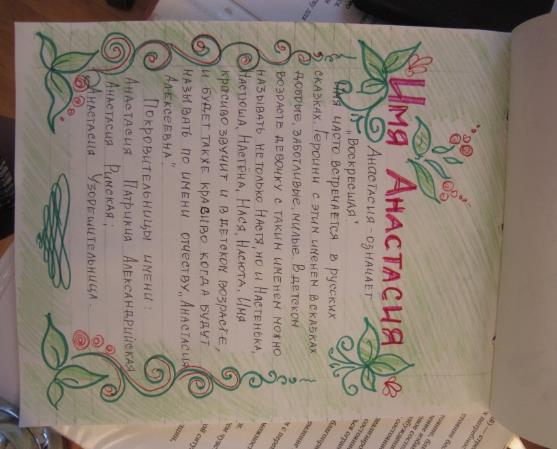 Имя Анастасия
Анастасия - означает
„Воскресшая".
Имя часто встречается в русских
сказках. Героини с этим именем в сказках
добрые, заботливые, милые. В детском
возрасте девочку с таким именем можно
называть не только Настя, но и Настенька,
Настюша, Настёна, Нася, Насюта. Имя
красиво звучит и в детском возрасте,
и будет также красиво когда будут
называть по имени отчеству „Анастасия
Алексеевна"
Покровительницы имени:
Анастасия Патрикия Александрийская
Анастасия Римская;
Анастасия Узорешительница.